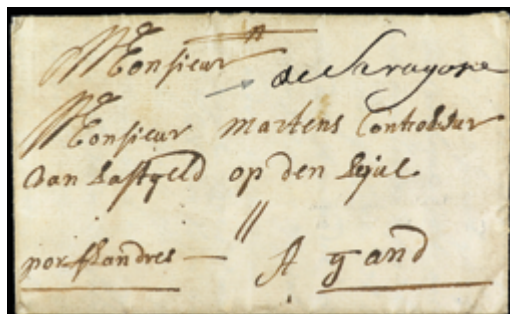 Monsieur
de Saragose
Monsieur Martens Controlleur
van Lastgeld op den
por flandres — A gand